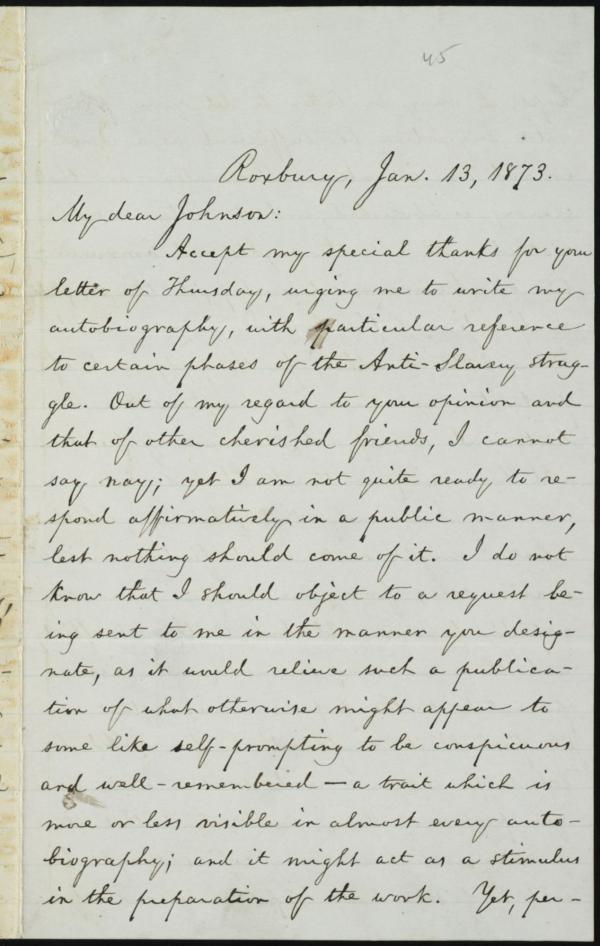 45
Roxbury, Jan. 13, 1873.
My dear Johnson:
Accept my special thanks for your
letter of Thursday, urging me to write my
autobiography, with particular reference
to certain phases of the Anti-Slavery strug-
gle. Out of my regard to your opinion and
that of other cherished friends, I cannot
say nay; yet I am not quite ready to re-
spond affirmatively in a public manner,
lest nothing should come of it. I do not
know that I should object to a request be-
ing sent to me in the manner you desig-
nate, as it would relieve such a publica-
tion of what otherwise might appear to
some like self-prompting to be conspicuous
and well-remembered — a trait which is
more or less visible in almost every auto-
biography; and it might act as a stimulus
in the preparation of the work. Yet, per-